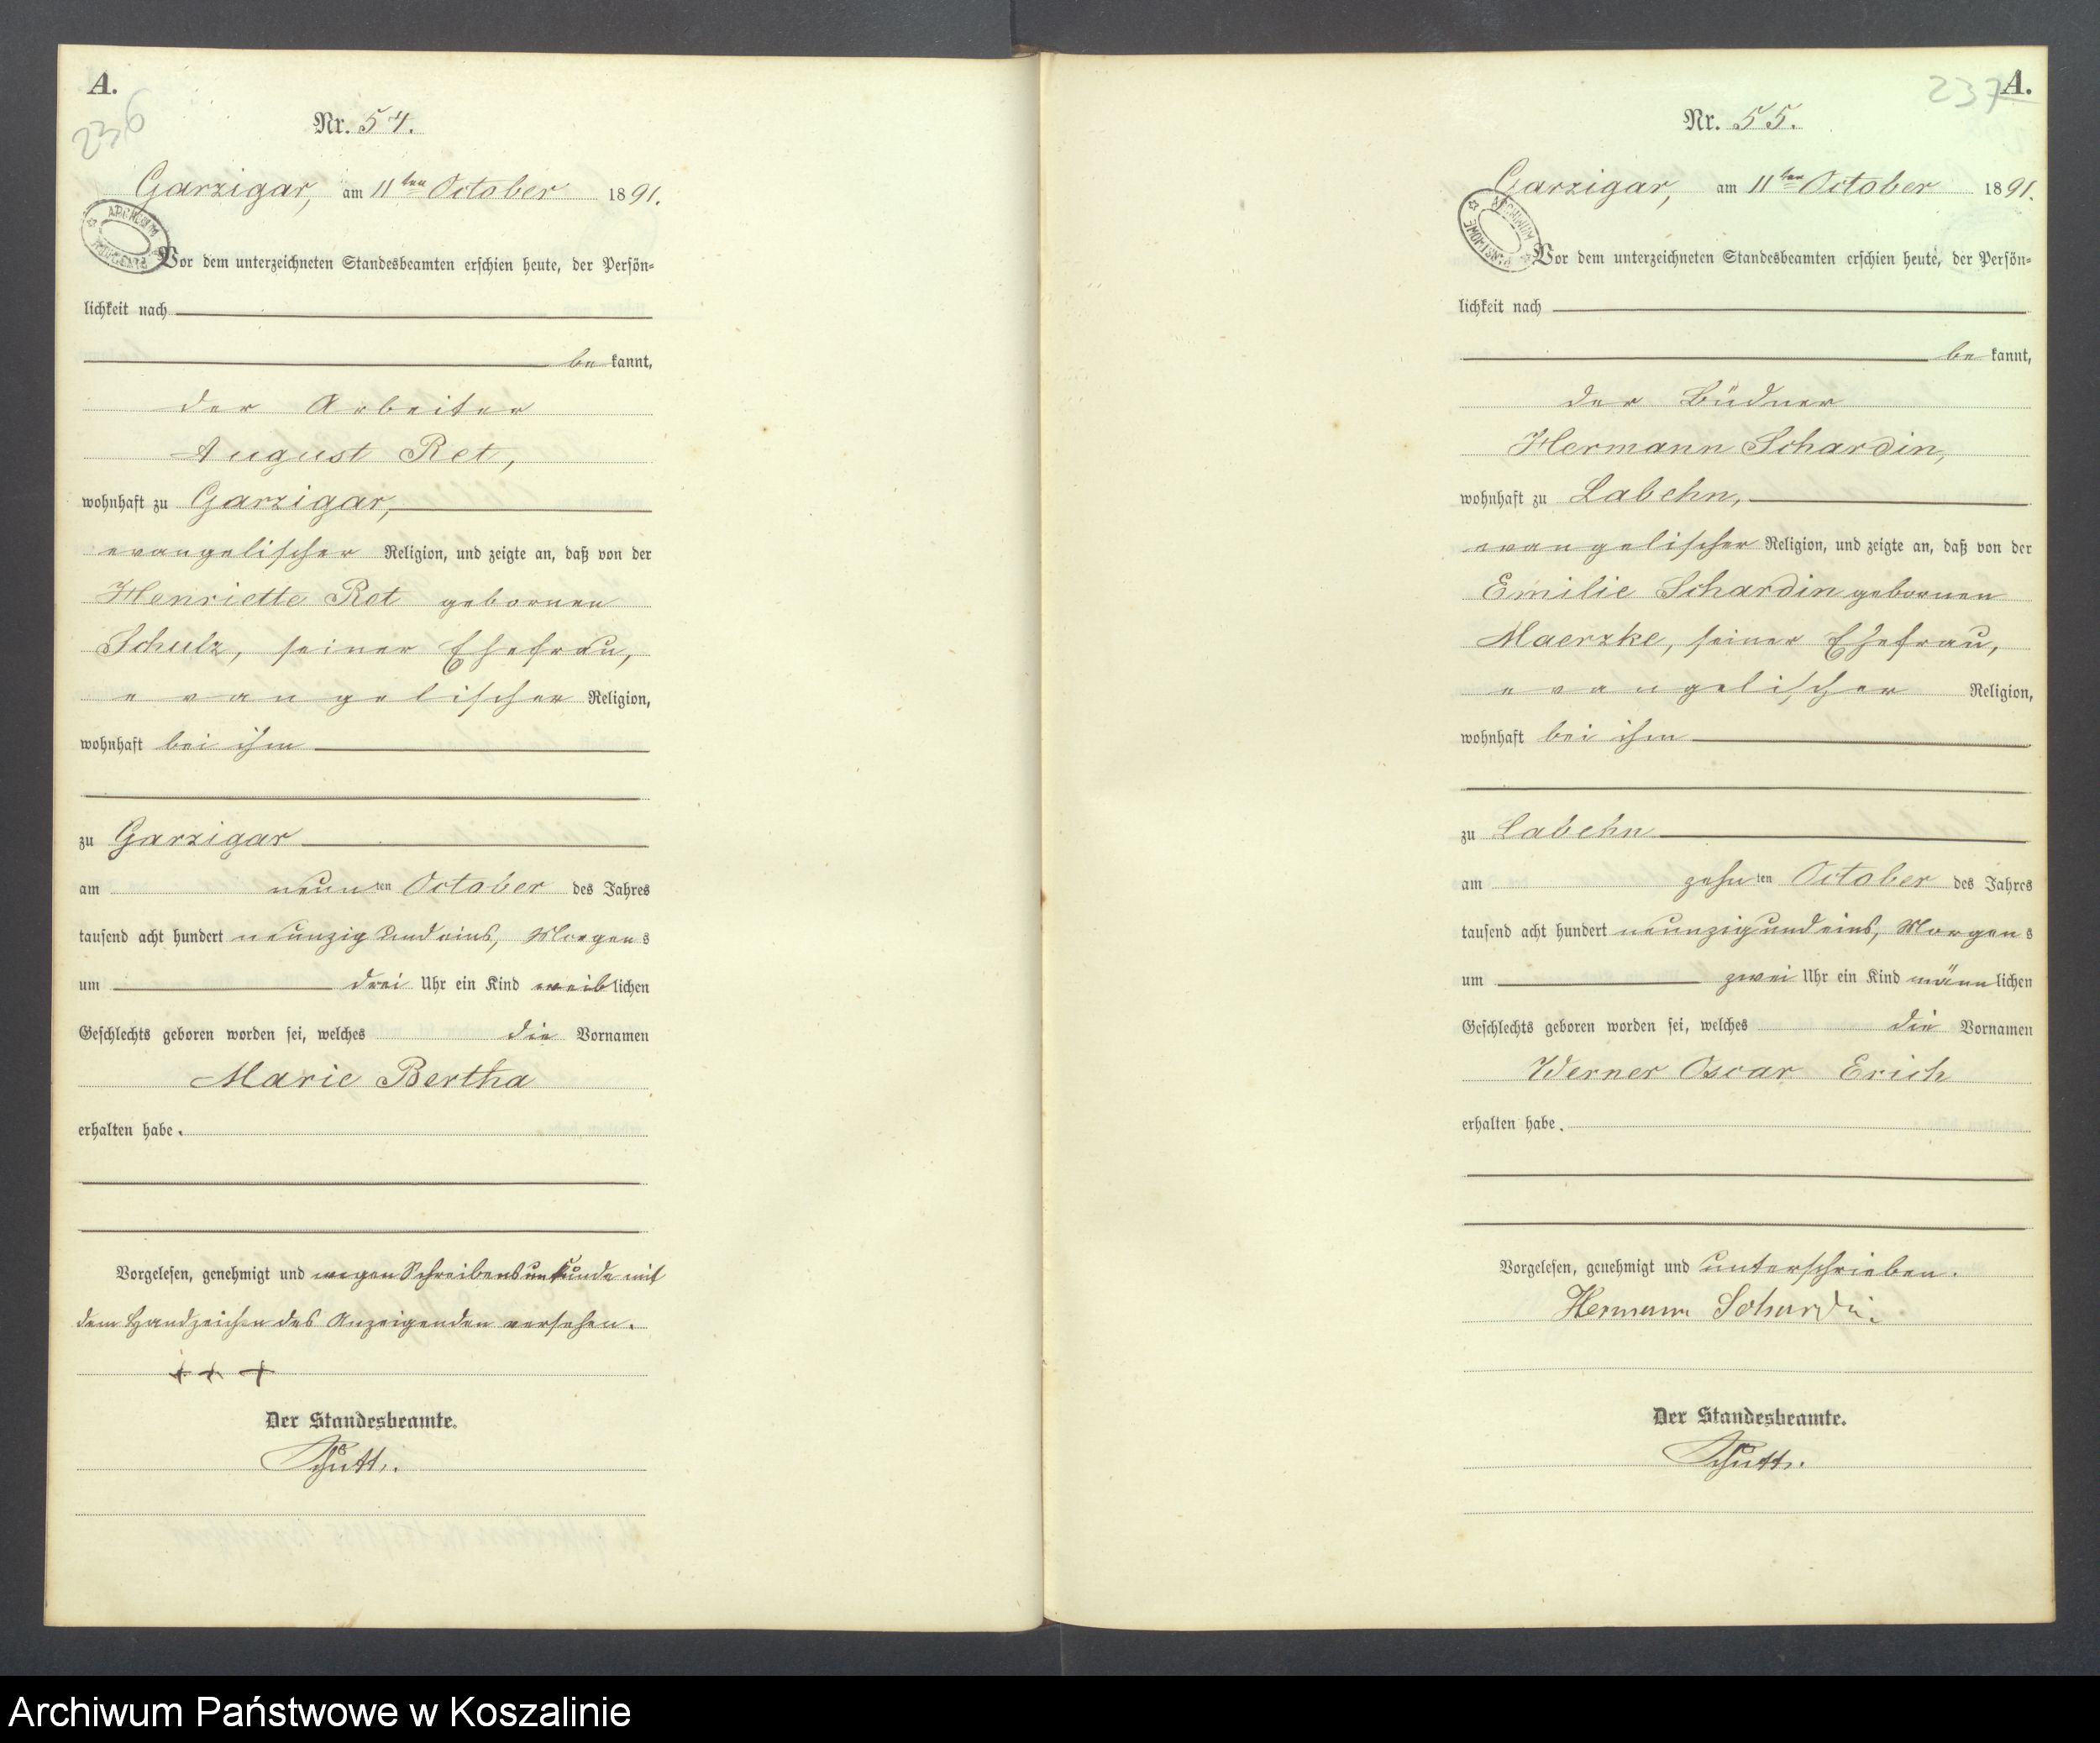 A.
236
Nr. 54.
Garzigar, am 11ten October 1891.
Vor dem unterzeichneten Standesbeamten erschien heute, der Persön=
lichkeit nach
be kannt,
der Arbeiter
August Ret,
wohnhaft zu Garzigar,
evangelischer Religion, und zeigte an, daß von der
Henriette Ret gebornen
Schulz, seiner Ehefrau,
evangelischer Religion,
wohnhaft bei ihm
zu Garzigar
am neunten October des Jahres
tausend acht hundert neunzig und eins, Morgens
um drei Uhr ein Kind weiblichen
Geschlechts geboren worden sei, welches die Vornamen
Marie Bertha
erhalten habe.
Vorgelesen, genehmigt und wegen Schreibensunkunde mit
dem Handzeichen des Anzeigenden versehen.
+++
Der Standesbeamte.
237
A.
Nr. 55.
Garzigar, am 11ten October 1891.
Vor dem unterzeichneten Standesbeamten erschien heute, der Persön=
lichkeit nach
be kannt,
der Büdner
Hermann Schardin,
wohnhaft zu Labehn,
evangelischer Religion, und zeigte an, daß von der
Emilie Schardin gebornen
Maerzke, seiner Ehefrau,
evangelischer Religion,
wohnhaft bei ihm
zu Labehn
am zehnten October des Jahres
tausend acht hundert neunzig und eins, Morgens
um zwei Uhr ein Kind männlichen
Geschlechts geboren worden sei, welches die Vornamen
Werner Oscar Erich
erhalten habe.
Vorgelesen, genehmigt und unterschrieben.
Hermann Schardin.
Der Standesbeamte.
Archiwum Państwowe w Koszalinie